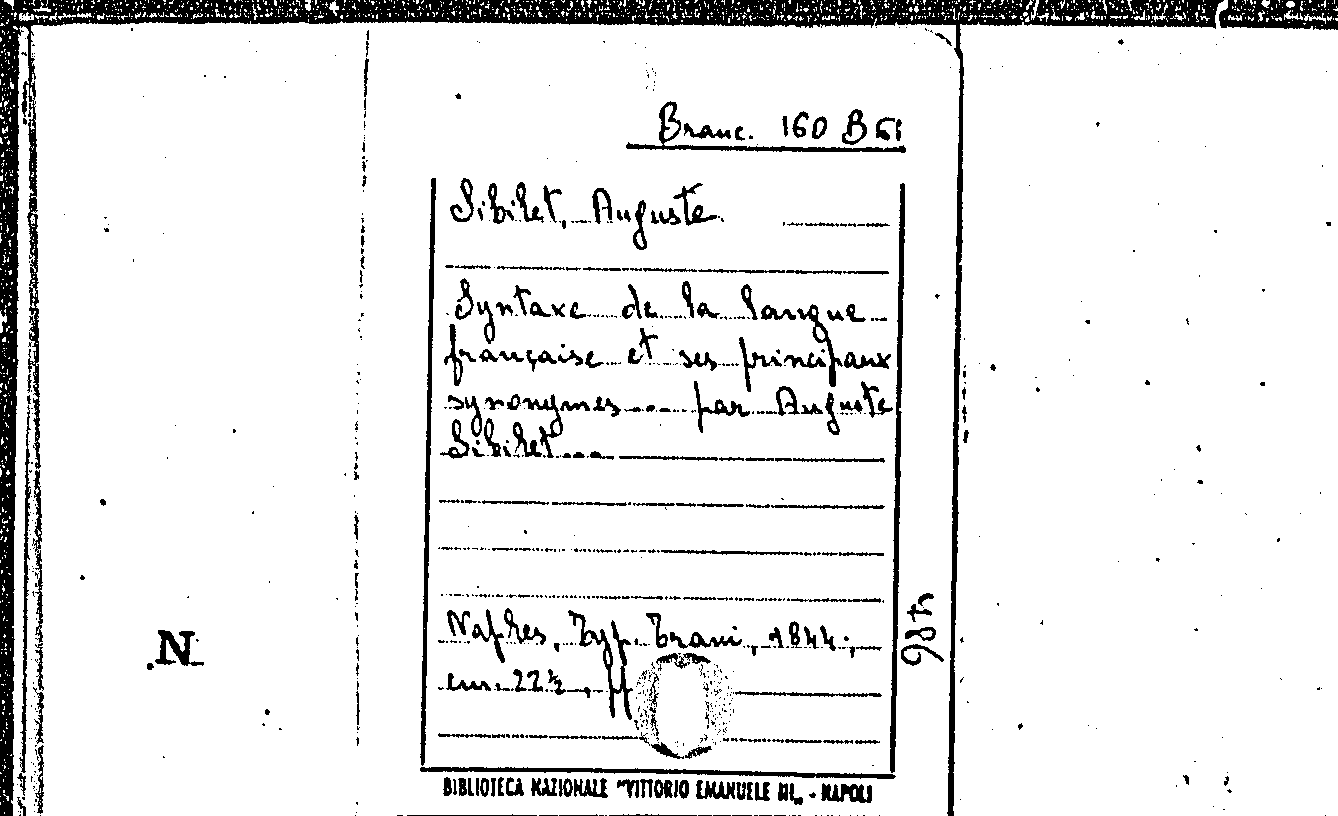 Branc. 160 B 61
Sibilet, Auguste.
Syntaxe de la langue
française et ses principaux
synonymes... par Auguste
Sibilet...
Naples, Typ. Trani, 1844;
cm. 22½, pp
BIBLIOTECA NAZIONALE "VITTORIO EMANUELE III„ - NAPOLI
.N.